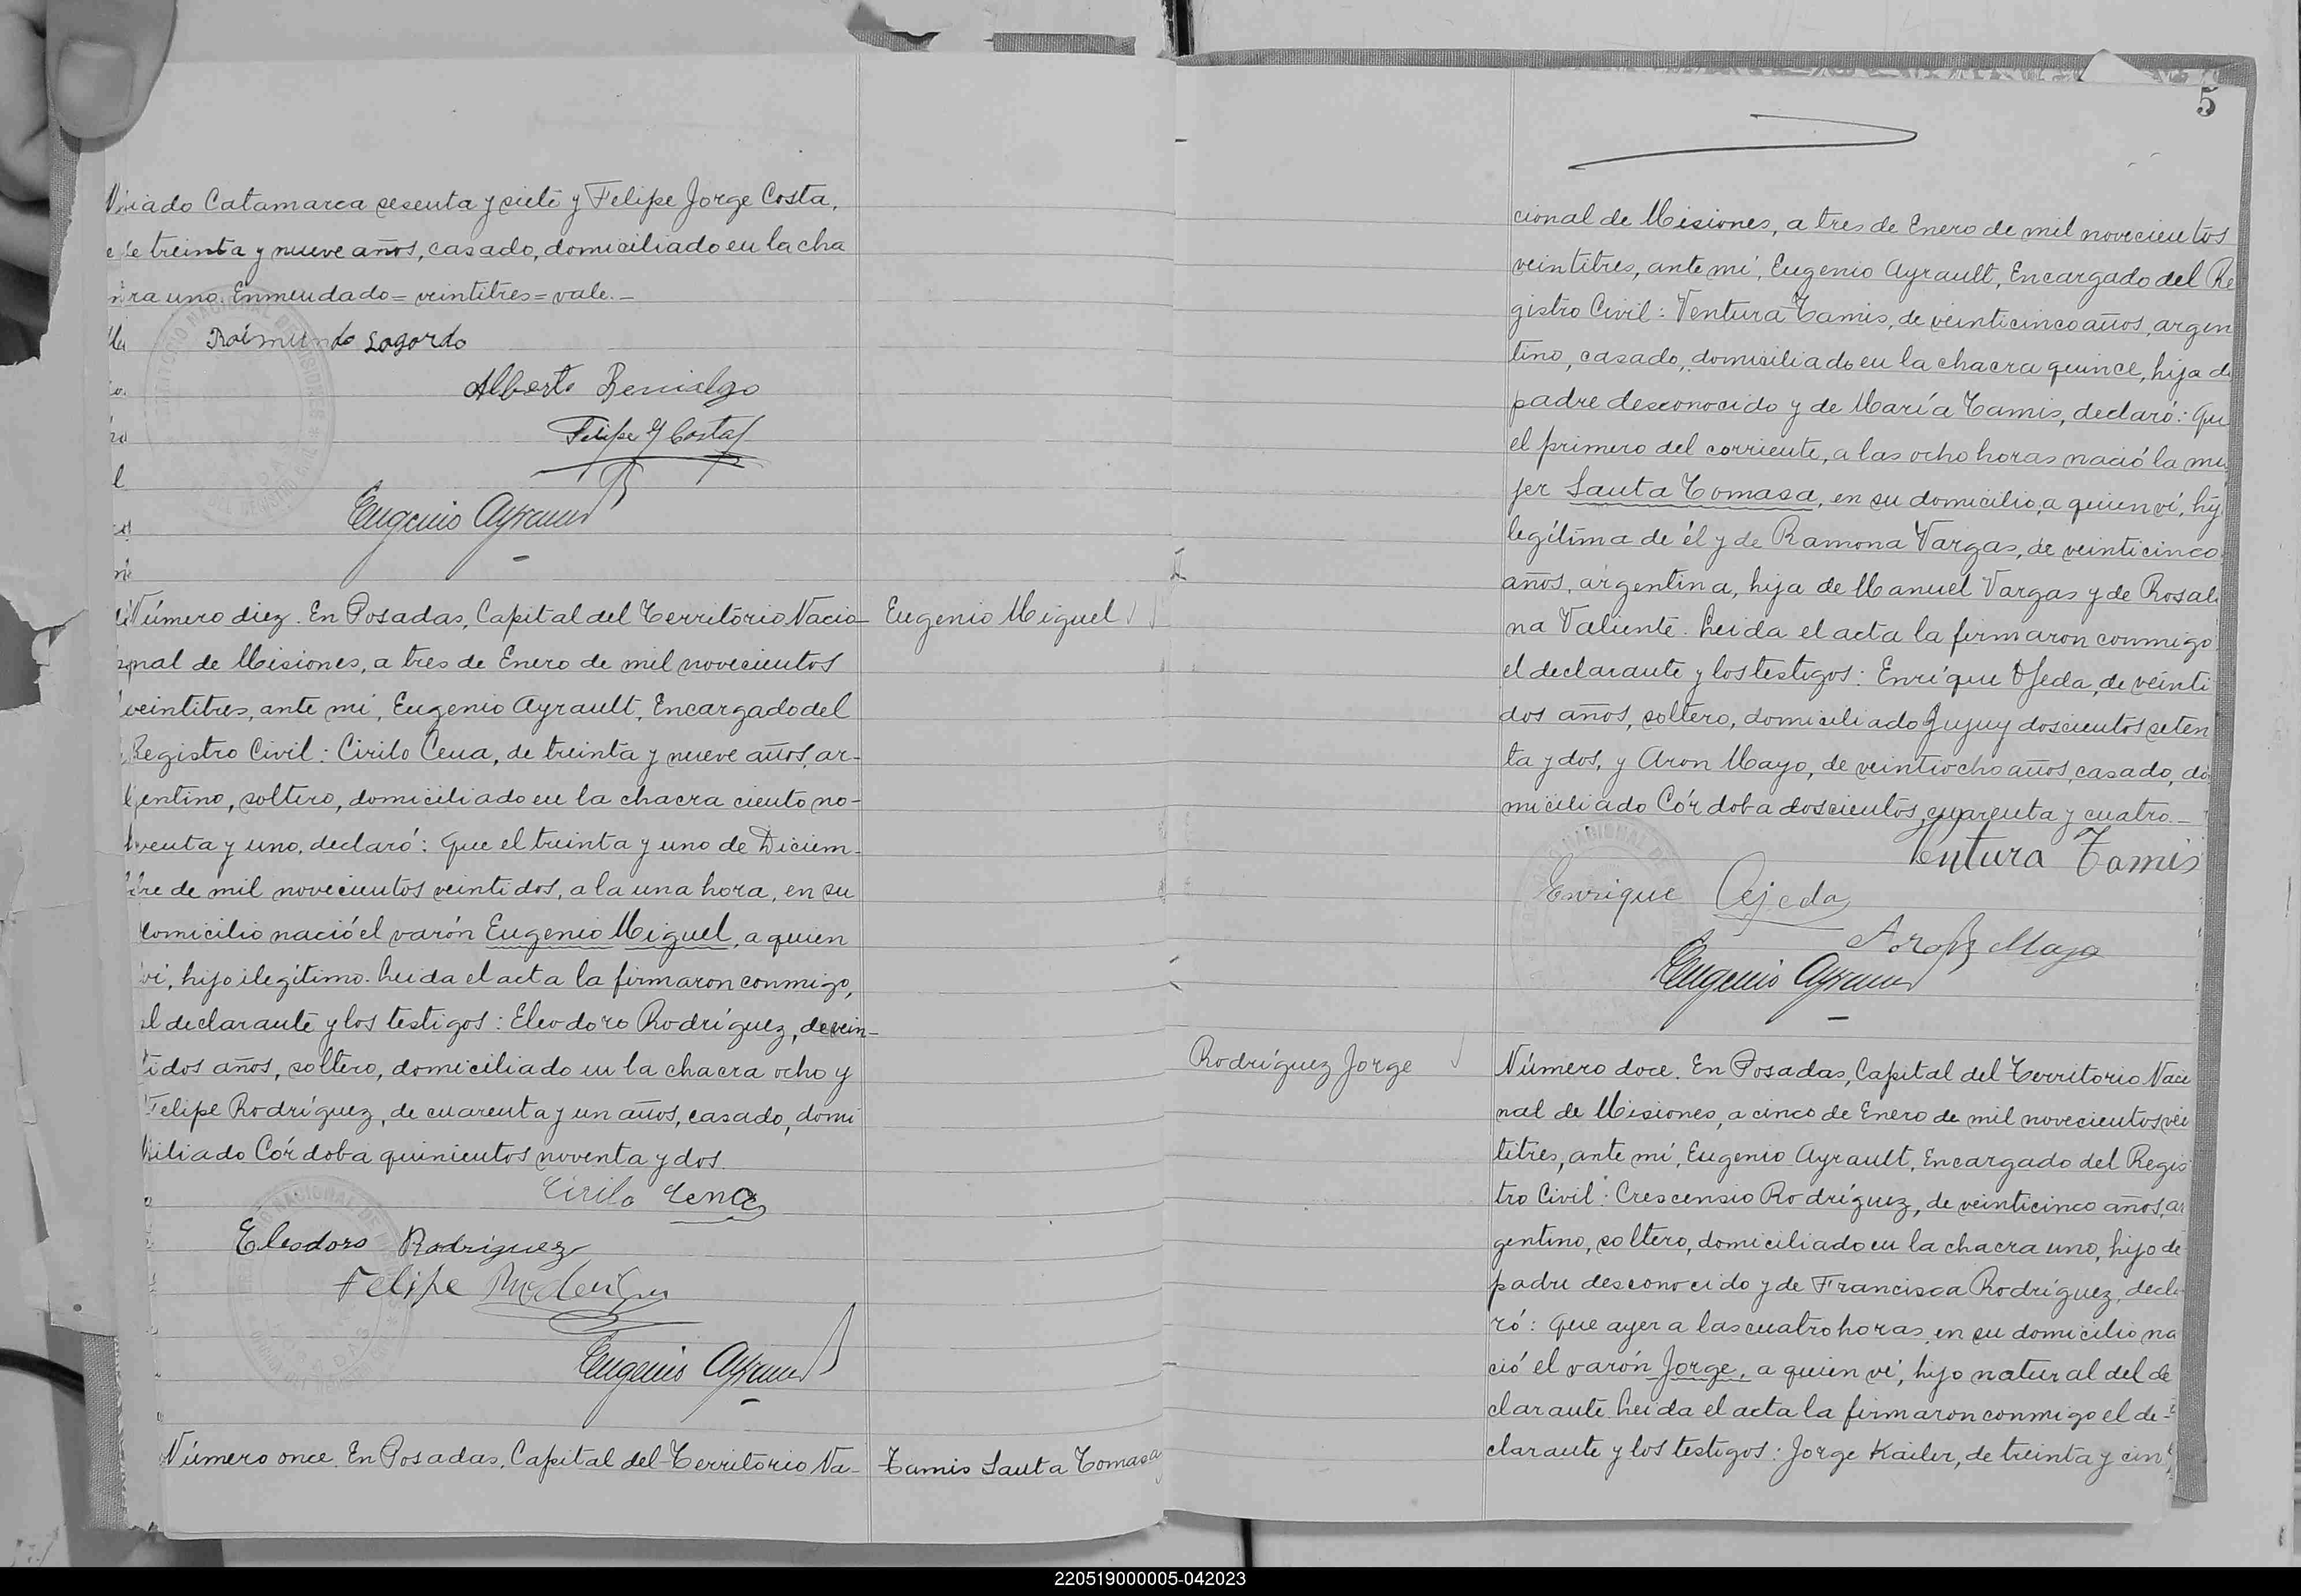 Catamarca sesenta y siete y Felipe Jorge Costa,
de treinta y nueve años, casado, domiciliado en la cha
cra uno. Enmendado = veintitres = vale.—
Raimundo Logordo
Alberto
Felipe J Costa
Eugenio Ayrault
Número diez. En Posadas, Capital del Territorio Nacio-
Eugenio Miguel
nal de Misiones, a tres de Enero de mil novecientos
veintitres, ante mí, Eugenio Ayrault, Encargado del
Registro Civil: Cirilo Cena, de treinta y nueve años, ar-
gentino, soltero, domiciliado en la chacra ciento no-
venta y uno, declaró: Que el treinta y uno de Diciem-
bre de mil novecientos veintidos, a la una hora, en su
domicilio nació el varón Eugenio Miguel, a quien
ví, hijo ilegítimo. Leida el acta la firmaron conmigo,
el declarante y los testigos: Eleodoro Rodríguez, de vein-
tidos años, soltero, domiciliado en la chacra ocho y
Felipe Rodríguez, de cuarenta y un años, casado, domi
ciliado Córdoba quinientos noventa y dos.
Cirilo Cena
Eleodoro Rodriguez
Felipe Rodriguez
Eugenio Ayrault
Número once. En Posadas, Capital del Territorio Na-
Tamis Santa Tomasa
5
cional de Misiones, a tres de Enero de mil novecientos
veintitres, ante mí, Eugenio Ayrault, Encargado del Re
gistro Civil: Ventura Tamis, de veinticinco años, argen
tino, casado, domiciliado en la chacra quince, hijo de
padre desconocido y de María Tamis, declaró: Que
el primero del corriente, a las ocho horas nació la mu
jer Santa Tomasa, en su domicilio, a quien ví, hij
legítima de él y de Ramona Vargas, de veinticinco
años, argentina, hija de Manuel Vargas y de Rosali
na Valiente. Leida el acta la firmaron conmigo
el declarante y los testigos: Enrique Ojeda, de veinti
dos años, soltero, domiciliado Jujuy doscientos seten
ta y dos, y Aron Mayo, de veintiocho años, casado, do
miciliado Córdoba doscientos cuarenta y cuatro.—
Ventura Tamis
Enrique Ojeda
Aron Mayo
Eugenio Ayrault
Rodríguez Jorge
Número doce. En Posadas, Capital del Territorio Nacio
nal de Misiones, a cinco de Enero de mil novecientos vein
titres, ante mí, Eugenio Ayrault, Encargado del Regis
tro Civil: Crescensio Rodríguez, de veinticinco años, ar
gentino, soltero, domiciliado en la chacra uno, hijo de
padre desconocido y de Francisca Rodríguez, decla
ró: Que ayer a las cuatro horas, en su domicilio na
ció el varón Jorge, a quien ví, hijo natural del de
clarante. Leida el acta la firmaron conmigo el de-
clarante y los testigos: Jorge Kailer, de treinta y cin
220519000005-042023